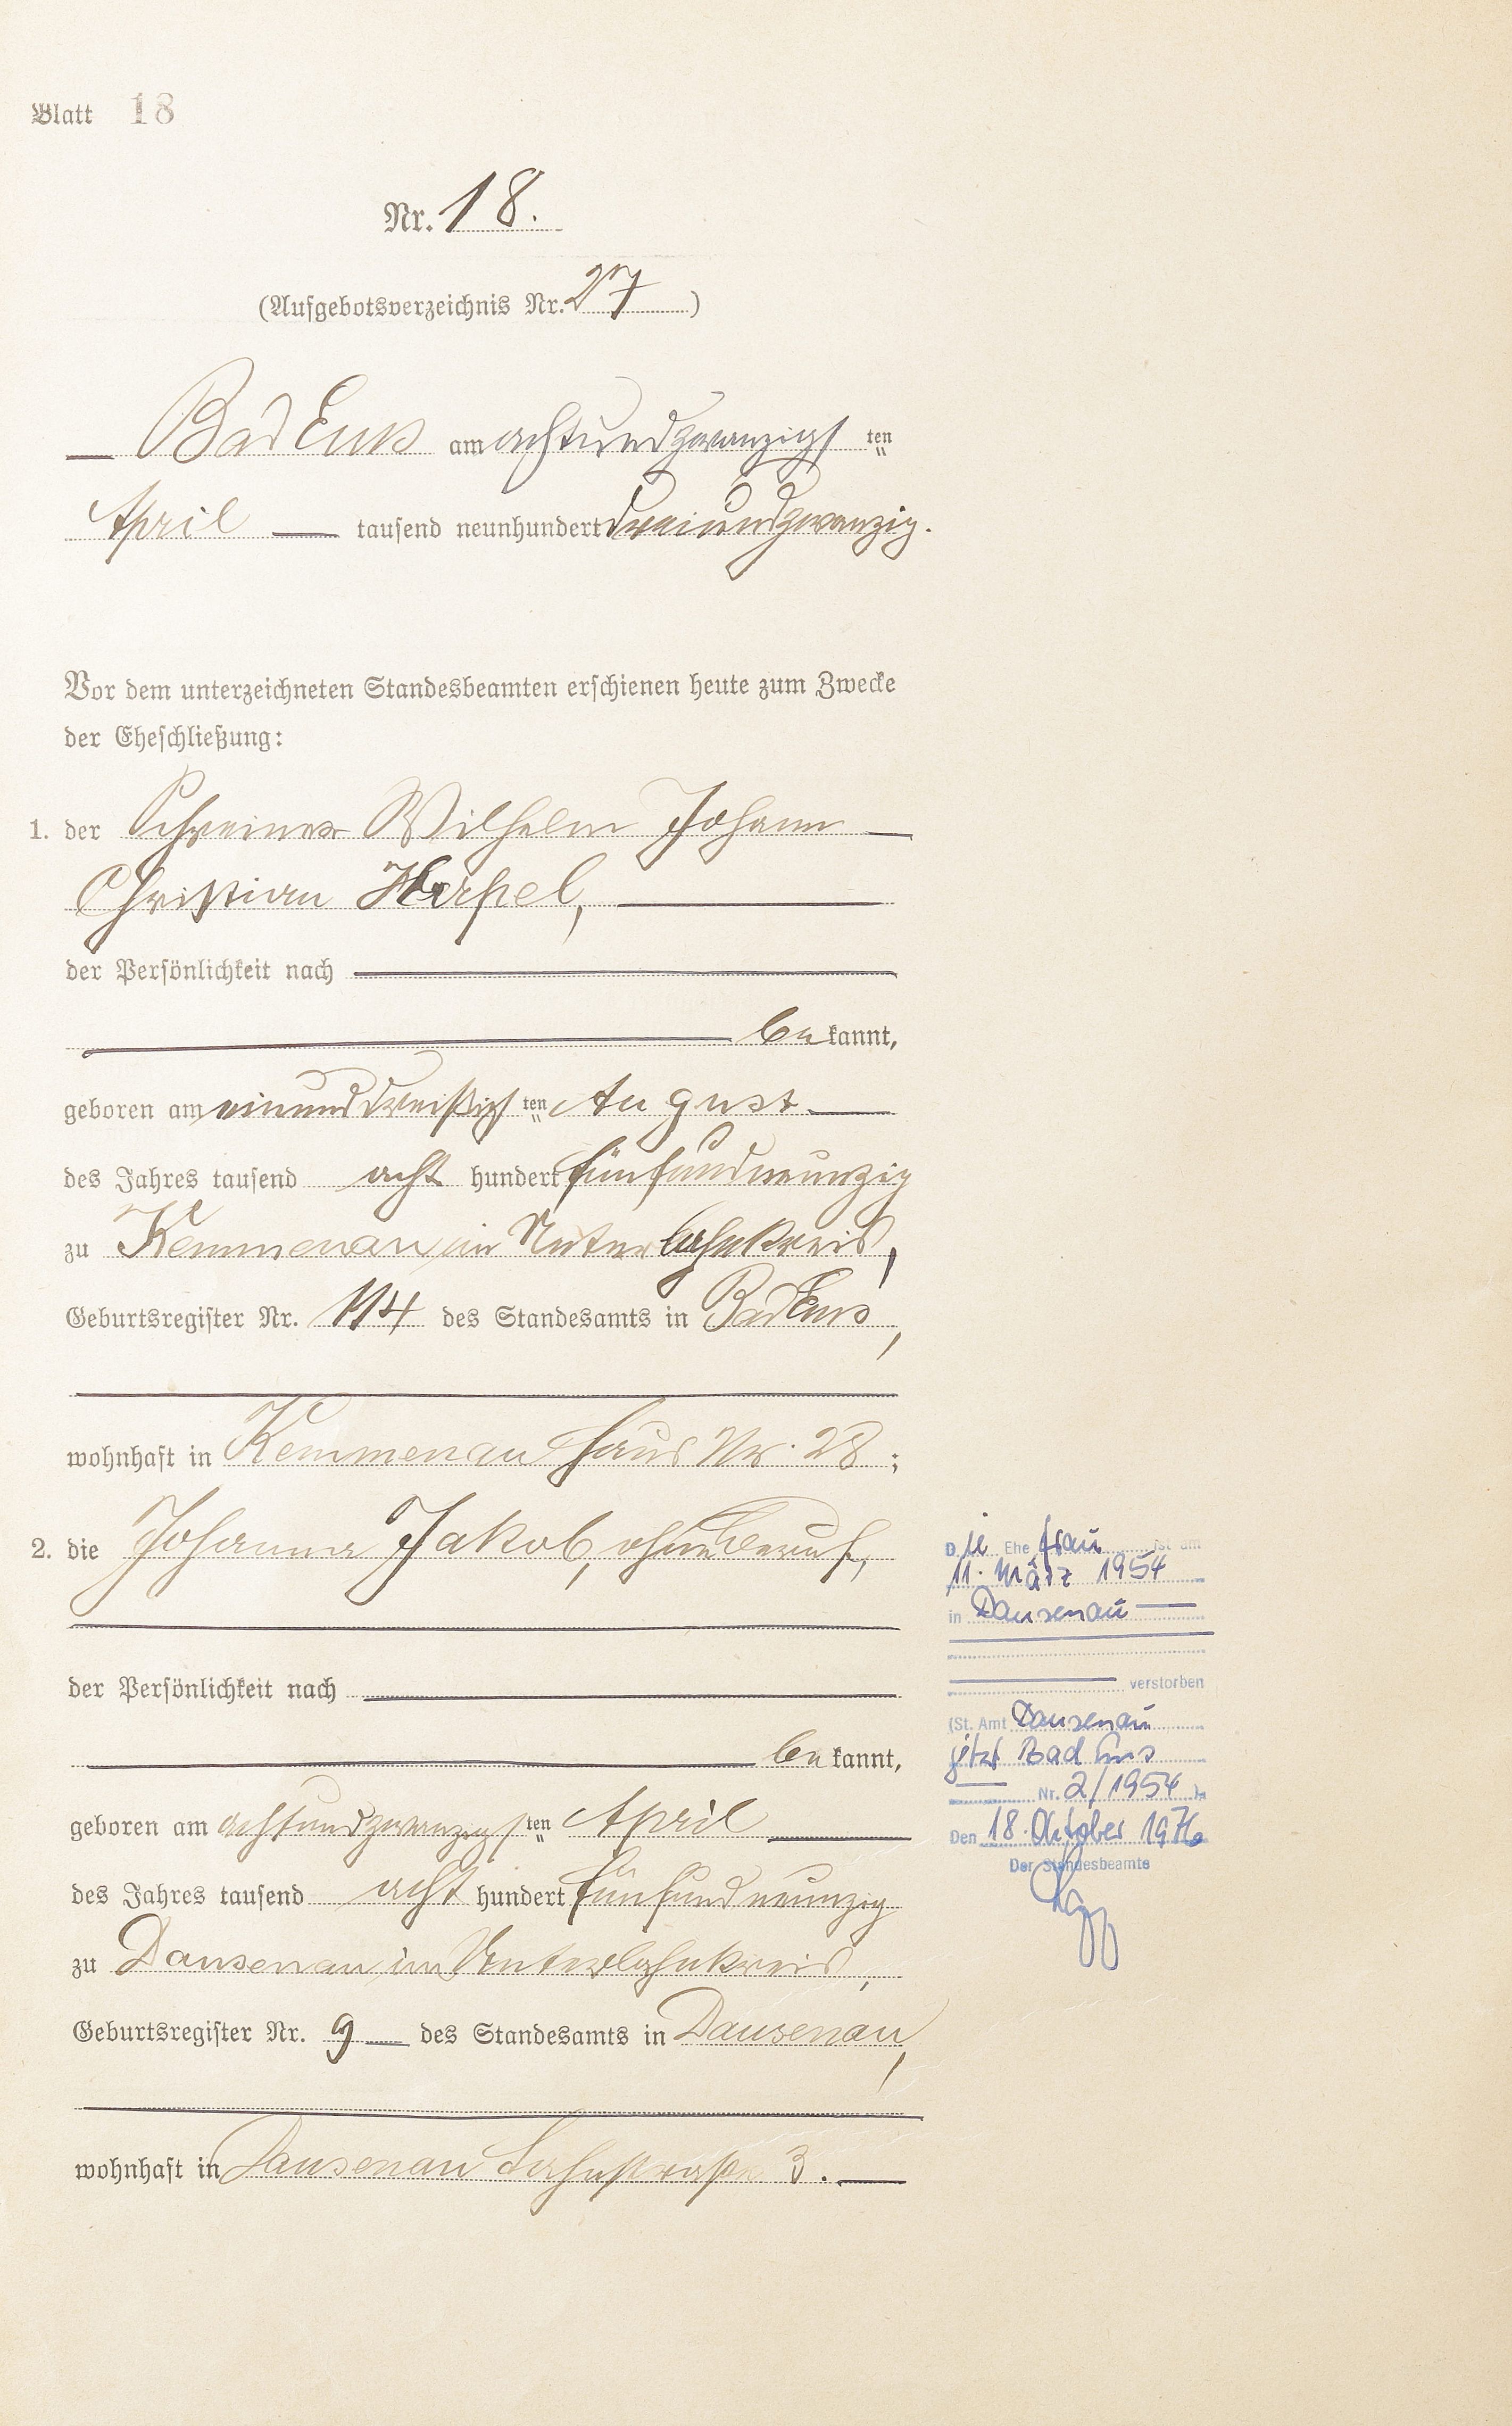 Blatt 18
Nr. 18.
(Aufgebotsverzeichnis Nr. 27)
Bad Ems am achtundzwanzigsten
April tausend neunhundert dreiundzwanzig.
Vor dem unterzeichneten Standesbeamten erschienen heute zum Zwecke
der Eheschließung:
1. der Schreiner Wilhelm Johann
Christian Harpel,
der Persönlichkeit nach
bekannt,
geboren am einunddreißigsten August
des Jahres tausend acht hundert fünfundneunzig
zu Kemmenau im Unterlahnkreis,
Geburtsregister Nr. 114 des Standesamts in Bad Ems,
wohnhaft in Kemmenau Haus Nr. 28;
2. die Johanna Jakob, ohne Beruf,
der Persönlichkeit nach
bekannt,
geboren am achtundzwanzigsten April
des Jahres tausend acht hundert fünfundneunzig
zu Dausenau im Unterlahnkreis,
Geburtsregister Nr. 9 des Standesamts in Dausenau,
wohnhaft in Dausenau Lahnstraße 3.
Die Ehefrau ist am
11. März 1954
in Dausenau
verstorben
(St. Amt Dausenau
jetzt Bad Ems
Nr. 2/1954).
Den 18. Oktober 1976
Der Standesbeamte